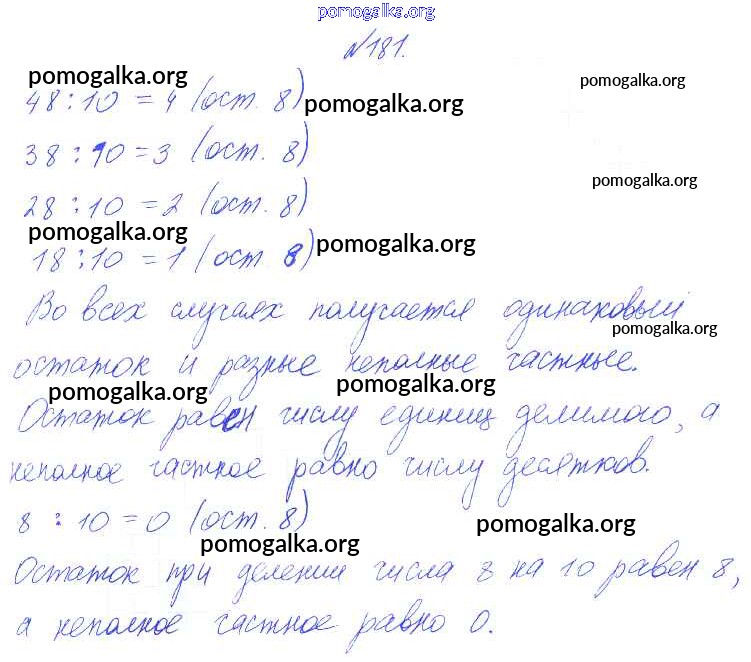 pomogalka.org
№181.
pomogalka.org
48 : 10 = 4 (ост. 8) pomogalka.org pomogalka.org
38 : 10 = 3 (ост. 8)
pomogalka.org
28 : 10 = 2 (ост. 8)
pomogalka.org
18 : 10 = 1 (ост. 8) pomogalka.org
Во всех случаях получается одинаковый
pomogalka.org
остаток и разные неполные частные.
pomogalka.org pomogalka.org
Остаток равен числу единиц делимого, а
неполное частное равно числу десятков.
8 : 10 = 0 (ост. 8)
pomogalka.org pomogalka.org
Остаток при делении числа 8 на 10 равен 8,
а неполное частное равно 0.